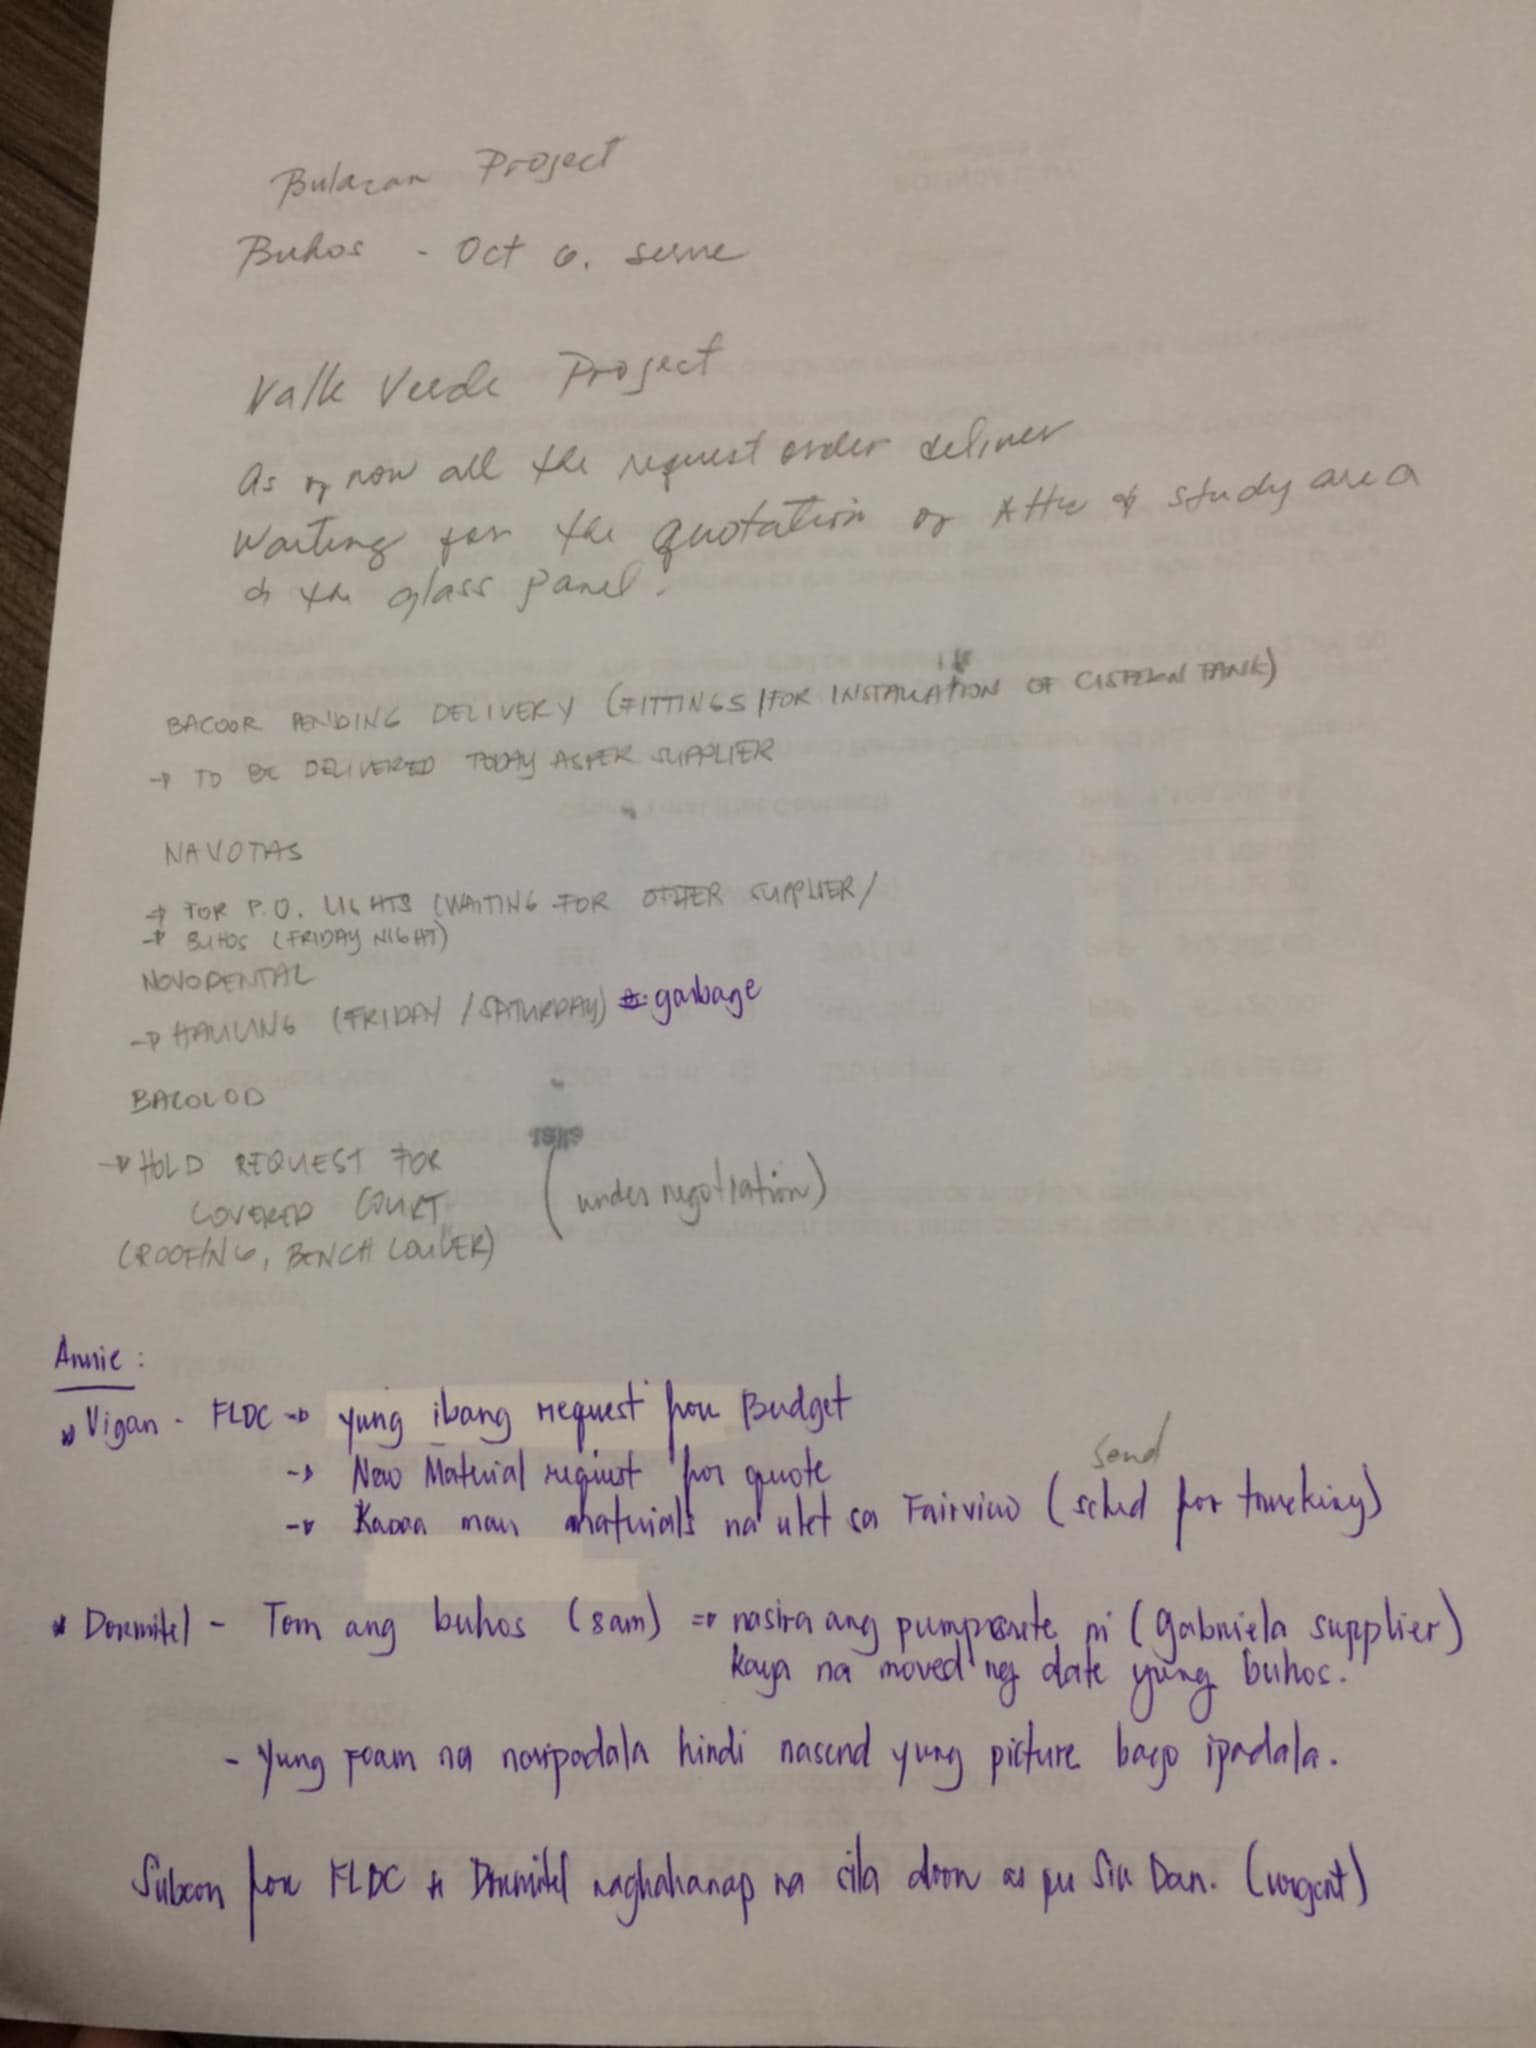 Bulacan Project
Buhos - Oct 6.
Valle Verde Project
As of now all the request order deliver
Waiting for the quotation of Attic & study area
& the glass panel.
BACOOR PENDING DELIVERY (FITTINGS/FOR INSTALLATION OF CISTERN TANK)
→ TO BE DELIVERED TODAY AS PER SUPPLIER
NAVOTAS
→ FOR P.O. LIGHTS (WAITING FOR OTHER SUPPLIER/
→ BUHOS (FRIDAY NIGHT)
NOVODENTAL
→ HAULING (FRIDAY / SATURDAY) garbage
BACOLOD
→ HOLD REQUEST FOR
COVERED COURT (under negotiation)
(ROOFING, BENCH LOUVER)
Annie :
* Vigan - FLDC → yung ibang request for Budget
→ New Material request for quote
send
→ materials na ulet sa Fairview (sched for trucking)
* Dormitel - Tom ang buhos (8am) ⇒ nasira ang pumpcrete ni (Gabriela supplier)
kaya na moved ng date yung buhos.
- Yung Foam na naipadala hindi nasend yung picture bago ipadala.
Subcon for FLDC & Dormitel naghahanap na sila doon as per Sir Dan. (urgent)